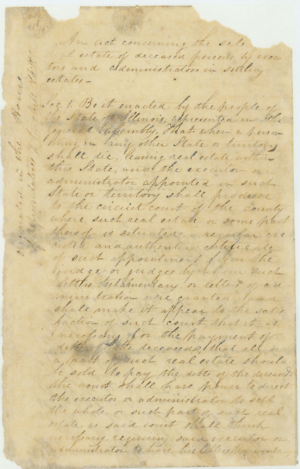 An act concerning the sale
real estate of deceased persons by execu
tors and administrators in settling
estates—
Sec 1. Be it enacted by the people of
the State of Illinois, represented in the
general assembly, That when a person
living in any other State or territory
shall die, leaving real estate within
this State, and the executor or
administrator appointed in such
State or territory shall produce
to the circuit court of the county
where such real estate or some part
thereof is situated a regular
and authentic certificate
of such appointment from the
judge or judges by whom such
letters testamentary or letters of ad
ministration were granted, and
shall make it appear to the satis
faction of such court that it is
necessary for the payment of
debts of the deceased that all or
a part of such real estate should
be sold to pay the debts of the deceased
the court shall have power to direct
the executor or administrator to sell
the whole or such part of such real
estate, as said court shall think
necessary requiring said executor or
administrator to